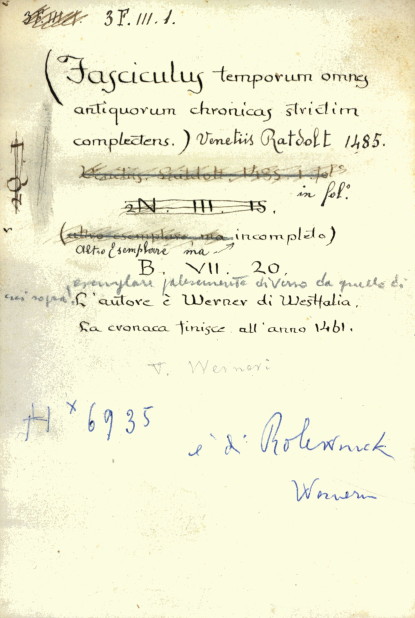 3F. III. 1.
(Fasciculus temporum omnes
antiquorum chronicas strictim
complectens.) Venetiis Ratdolt 1485.
Venetiis, Ratdolt, 1485 1 fol°
in fol.°
2N. III. 15.
(altro esemplare ma incompleto)
Altro Esemplare ma
B. VII. 20.
esemplare palesemente diverso da quello di
cui sopra. L'autore è Werner di Westfalia.
La cronaca finisce all'anno 1461.
V. Werneri
H x 6935
è di Rolewinck
Werner